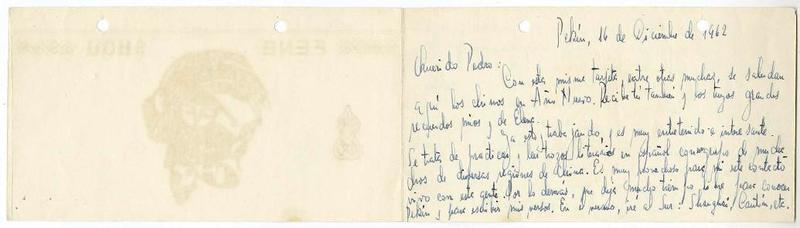 Pekín, 16 de Diciembre de 1962
Querido Pedro:
Con esta misma tarjeta, entre otras muchas, se saludan
aquí los chinos en Año Nuevo. Recibe tú también y los tuyos grandes
recuerdos míos y de Elena.
Ya estoy trabajando, y es muy entretenido e interesante.
Se trata de practicar, y leer trozos literarios en español con un grupo de mucha
chos de diversas regiones de China. Es muy para mí este contacto
vivo con esta gente. Por lo demás, me deja mucho tiempo libre para conocer
Pekín y para escribir mis versos. En iré al Sur: Shanghai, Cantón, etc.